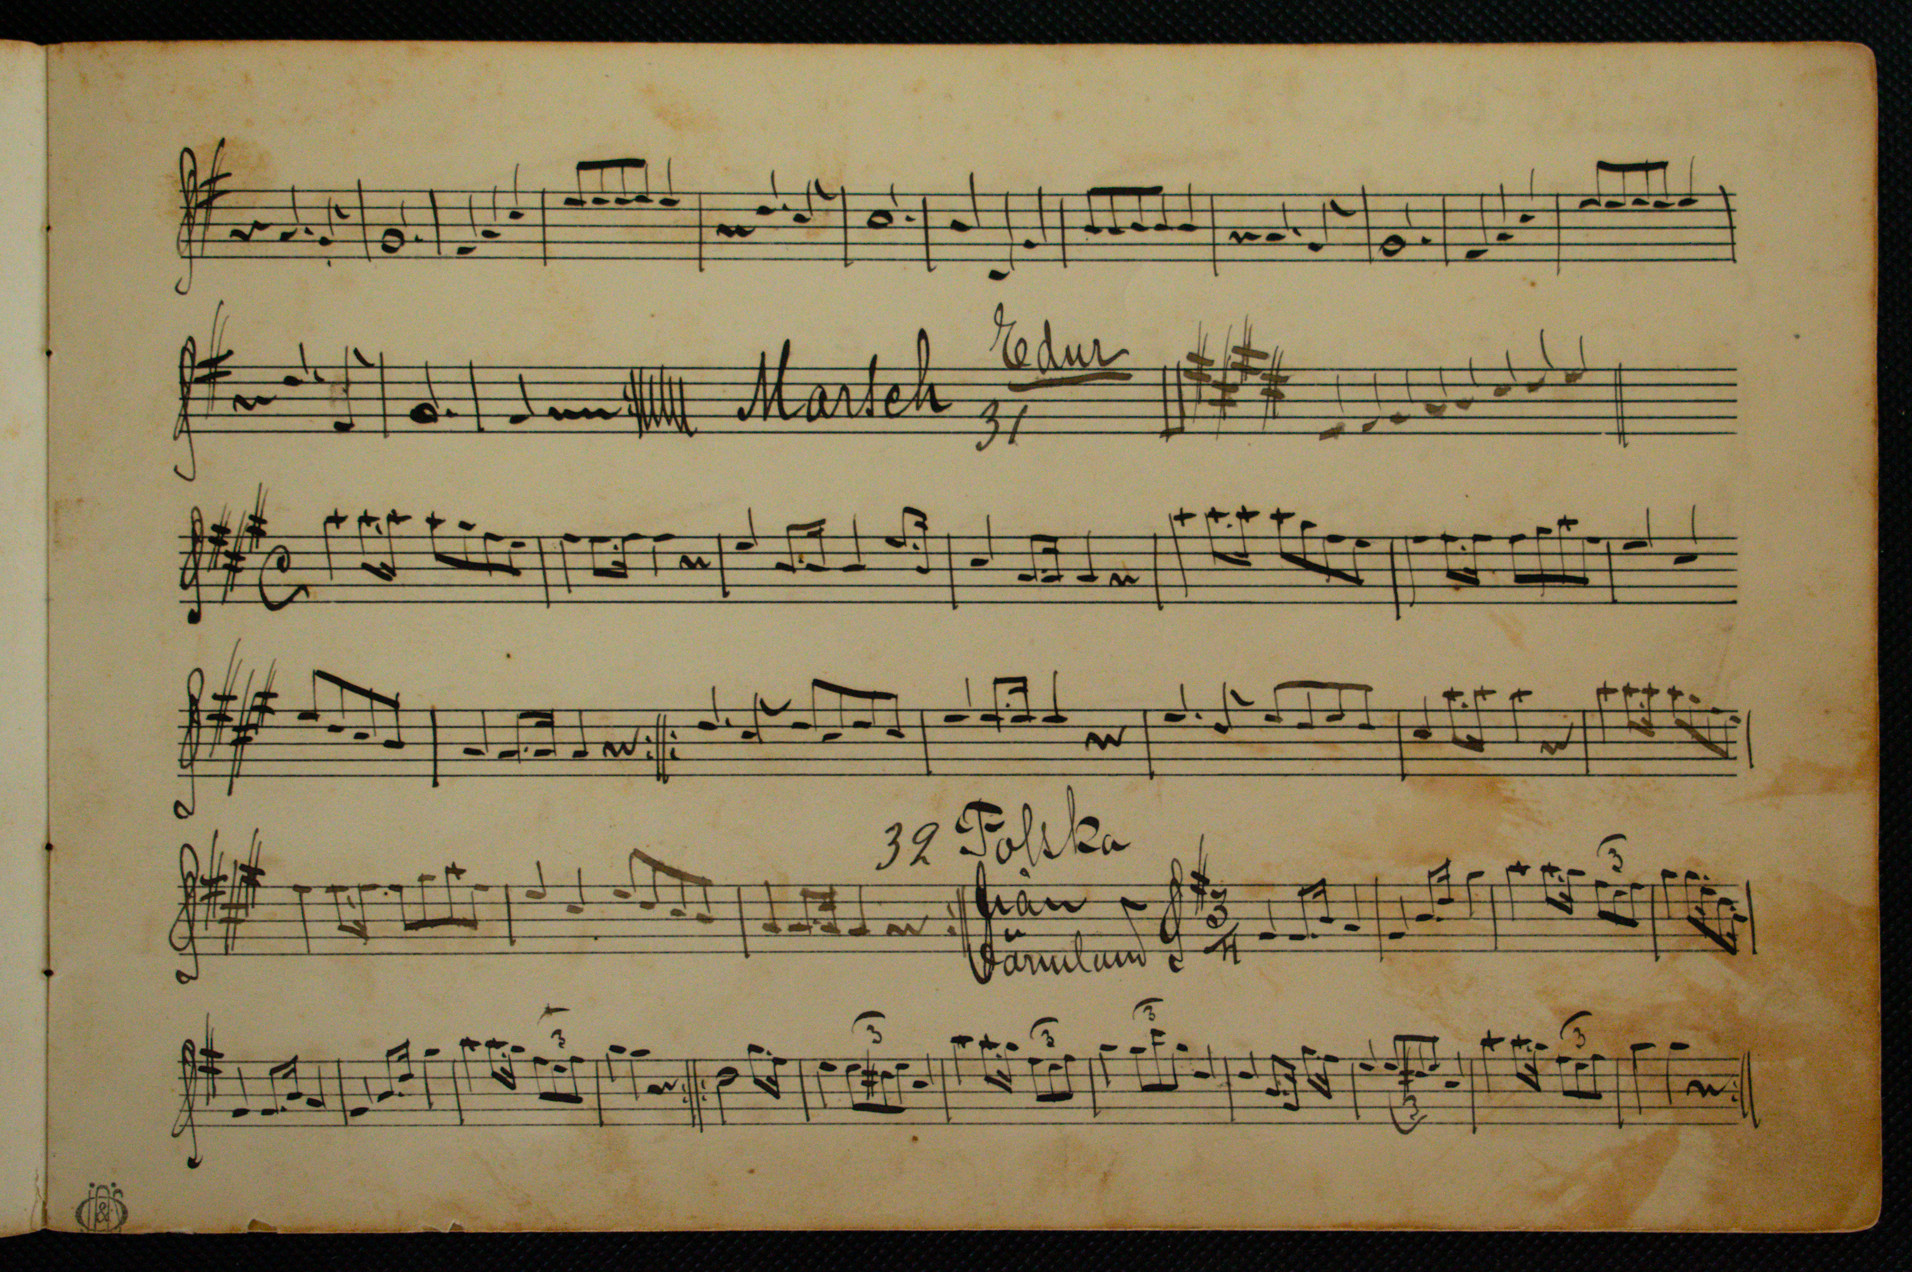 Marsch Edur
31
32 Polska
från
Värmland
3
4
3
3
3
3
3
3
3